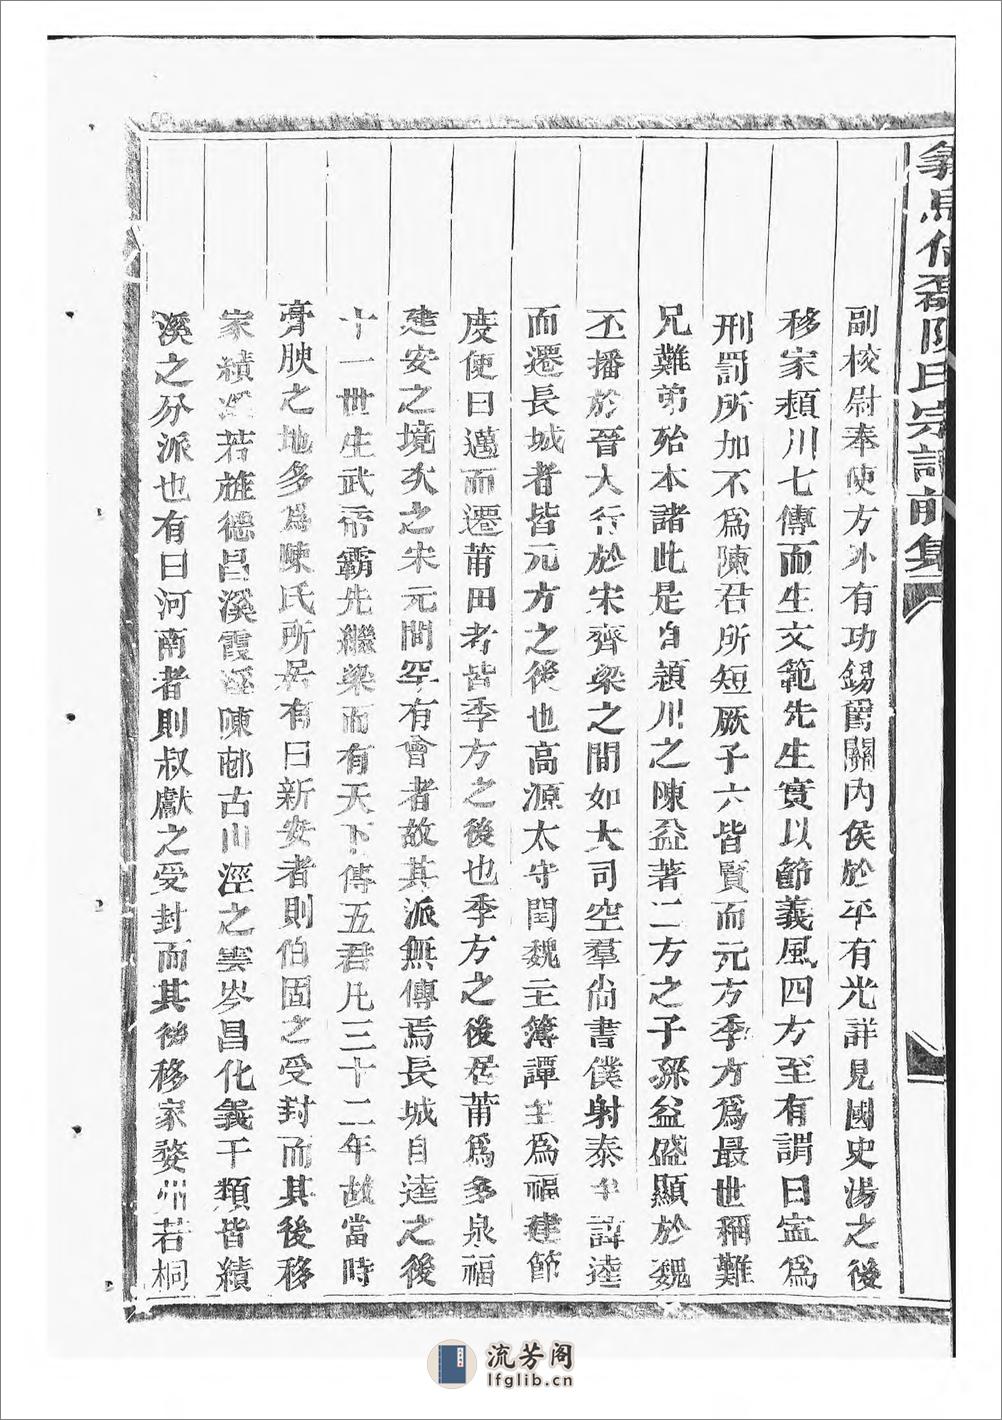 義烏什磊陳氏宗譜前集
副校尉奉使方外有功錫爵關內侯於平有光詳見國史湯之後
移家頴川七傳而生文範先生寔以節義風四方至有謂曰寔爲
刑罰所加不爲陳君所短厥子六皆賢而元方季方爲最世稱難
兄難弟殆本諸此是自頴川之陳益著二方之子孫益盛顯於魏
丕播於晉大行於宋齊梁之間如大司空羣尚書僕射泰 諱逵
而遷長城者皆元方之後也高源太守閏魏主簿譚至爲福建節
度使曰邁而遷莆田者皆季方之後也季方之後居莆爲多泉福
建安之境次之宋元間罕有會者故其派無傳焉長城自逵之後
十一世生武帝霸先繼梁而有天下傳五君凡三十二年故當時
膏腴之地多爲陳氏所居有曰新安者則伯固之受封而其後移
家績溪若旌德昌溪霞溪陳邨古川涇之雲岑昌化義干類皆績
溪之分派也有曰河南者則叔獻之受封而其後移家婺州若桐
流芳阁
lfglib.cn